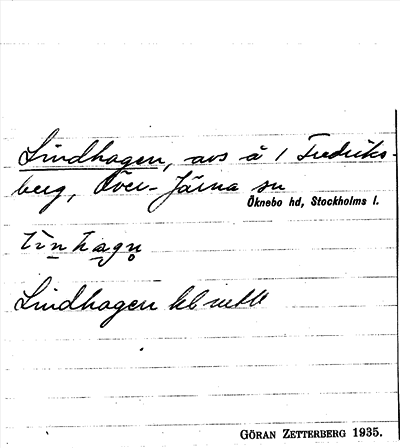 Lindhagen, avs å 1 Fredriks-
berg, Över-Järna sn
Öknebo hd, Stockholms l.
Lindhagen
GÖRAN ZETTERBERG 1935.